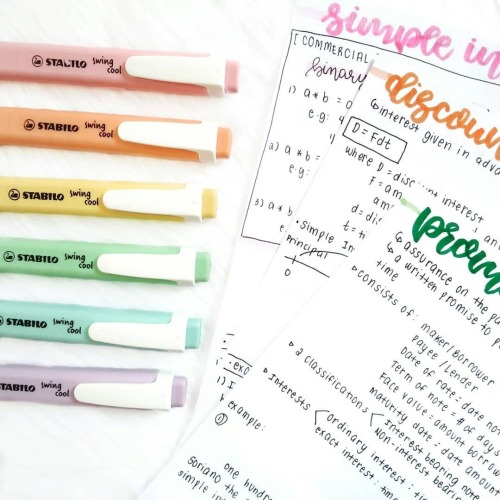 STABILO swing cool
STABILO swing cool
STABILO swing cool
STABILO swing cool
STABILO swing cool
STABILO swing cool
simple in
[ COMMERCIAL
binary
1) a * b = 0
e.g: 4
a) a * b =
e.g:
3) a * b
• simple In
principal
0
discoun
↳ interest given in adva
D = Fdt
where D = discount interest
F = am
am
d = di
t = ti
prom
↳ assurance on the pa
↳ a written promise to p
time
• consists of:
maker/borrower
payee / Lender
Date of note: date not
Term of note = # of days
Face value: amount borrow
maturity date = date amoun
• 2 classifications
Interest bearing note
Non-interest bear
• Interests
ordinary interest:
exact interest:
example:
one hundr
Soriano the
simple int